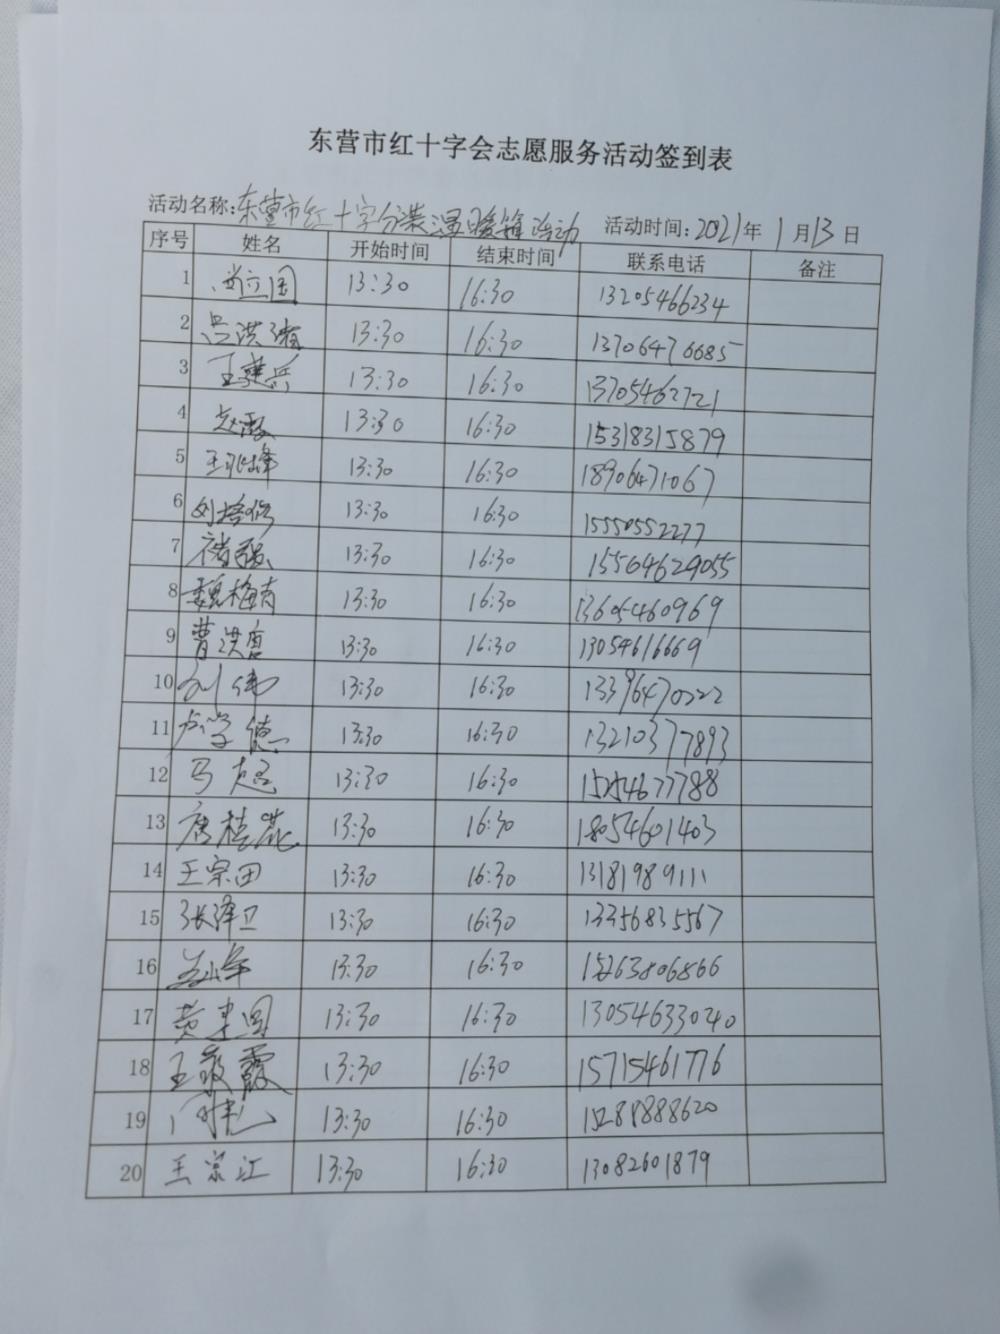 东营市红十字会志愿服务活动签到表
活动名称:东营市红十字分装温暖箱活动 活动时间:2021年 1月13日
序号 姓名 开始时间 结束时间 联系电话 备注
1 尚立国 13:30 16:30 13205466234
2 吕洪 13:30 16:30 13706476685
3 王建兵 13:30 16:30 13705462721
4 赵 13:30 16:30 15318315879
5 王 峰 13:30 16:30 18906471067
6 刘培 13:30 16:30 15550552277
7 褚强 13:30 16:30 15564629055
8 魏梅青 13:30 16:30 13605460969
9 曹洪 13:30 16:30 13054616669
10 刘伟 13:30 16:30 13396470222
11 卢学德 13:30 16:30 13210377893
12 马超 13:30 16:30 15254677788
13 唐桂花 13:30 16:30 18054601403
14 王宗田 13:30 16:30 13181989111
15 张泽卫 13:30 16:30 13356835567
16 13:30 16:30 15263806866
17 黄建国 13:30 16:30 130546330240
18 王敬霞 13:30 16:30 15715461776
19 13:30 16:30 15288888620
20 王宗江 13:30 16:30 13082601879